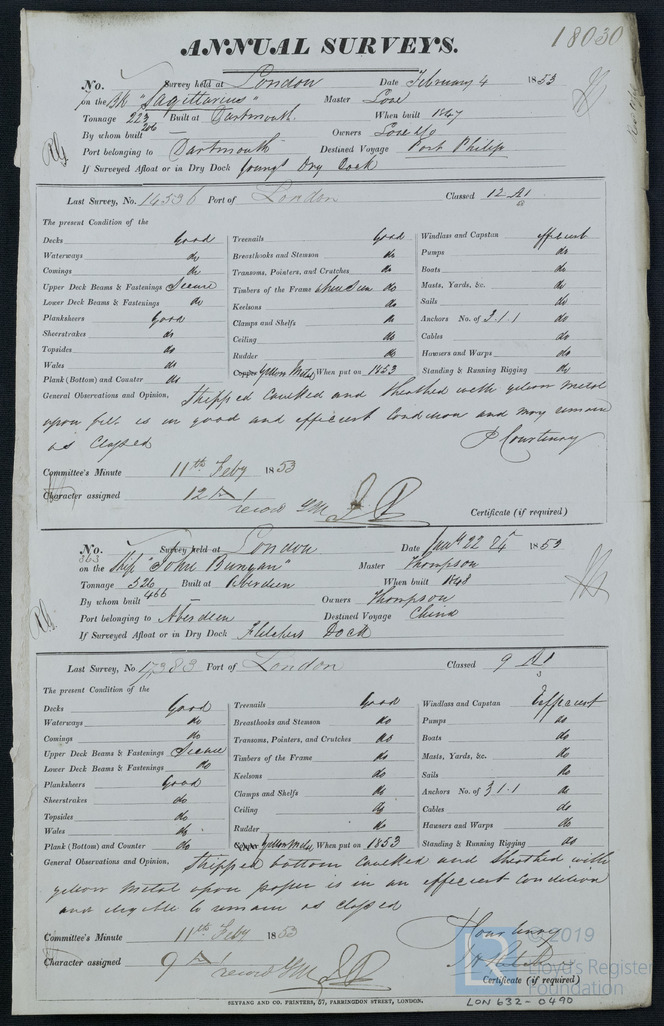 18030
ANNUAL SURVEYS.
No. Survey held at London Date February 4 1853
on the Bk "Sagittarius" Master Lose
Tonnage 223 206 Built at Dartmouth. When built 1847
By whom built — Owners Lose & Co
Port belonging to Dartmouth Destined Voyage Port Philip
If Surveyed Afloat or in Dry Dock Youngs Dry Dock
Last Survey, No. 14536 Port of London Classed 12 A1
The present Condition of the
Decks Good Treenails Good Windlass and Capstan efficient
Waterways do Breasthooks and Stemson do Pumps do
Comings do Transoms, Pointers, and Crutches do Boats do
Upper Deck Beams & Fastenings Secure Timbers of the Frame when seen do Masts, Yards, &c. do
Lower Deck Beams & Fastenings do Keelsons do Sails do
Planksheers Good Clamps and Shelfs do Anchors No. of 3.1.1 do
Sheerstrakes do Ceiling do Cables do
Topsides do Rudder do Hawsers and Warps do
Wales do Copper Yellow Metal When put on 1853 Standing & Running Rigging do
Plank (Bottom) and Counter do
General Observations and Opinion, Stripped Caulked and Sheathed with yellow metal
upon felt is in good and efficient condition and may remain
as Classed P Courtenay
Committee's Minute 11th Feby 1853
Character assigned 12 A 1
record YM
Certificate (if required)
No. Survey held at London Date Jany 22 24 1853
863 on the Ship "John Bunyan" Master Thompson
Tonnage 526 466 Built at Aberdeen When built 1848
By whom built — Owners Thompson
Port belonging to Aberdeen Destined Voyage China
If Surveyed Afloat or in Dry Dock Fletchers Dock
Last Survey, No 17383 Port of London Classed 9 A1
The present Condition of the
Decks Good Treenails Good Windlass and Capstan Efficient
Waterways do Breasthooks and Stemson do Pumps do
Comings do Transoms, Pointers, and Crutches do Boats do
Upper Deck Beams & Fastenings Secure Timbers of the Frame do Masts, Yards, &c. do
Lower Deck Beams & Fastenings do Keelsons do Sails do
Planksheers Good Clamps and Shelfs do Anchors No. of 3 1.1 do
Sheerstrakes do Ceiling do Cables do
Topsides do Rudder do Hawsers and Warps do
Wales do Copper Yellow Metal When put on 1853 Standing & Running Rigging do
Plank (Bottom) and Counter do
General Observations and Opinion, Stripped bottom caulked and sheathed with
yellow metal upon paper is in an efficient condition
and eligible to remain as classed
P Courtenay
Committee's Minute 11th Feby 1853
Character assigned 9 A 1
record YM
Certificate (if required)
SEYFANG AND CO. PRINTERS, 57, FARRINGDON STREET, LONDON.
LON 632-0490
LR © 2019
Lloyd's Register
Foundation